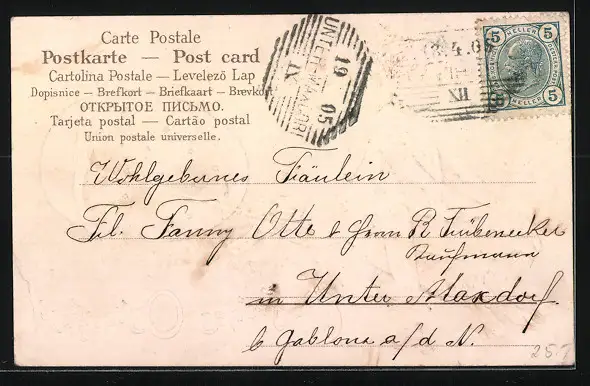 Carte Postale
Postkarte — Post card
Cartolina Postale — Levelező Lap
Dopisnice — Brefkort — Briefkaart — Brevkort
ОТКРЫТОЕ ПИСЬМО.
Tarjeta postal — Cartão postal
Union postale universelle.
UNTER-MAXDORF
19 05
IX
4.05
XII
5 HELLER 5
5 HELLER 5
Wohlgebornes Fräulein
Frl. Fanny Otte b Herrn R Trübenecker
Kaufmann
in Unter Maxdorf
b Gablonz a/d N.
25.